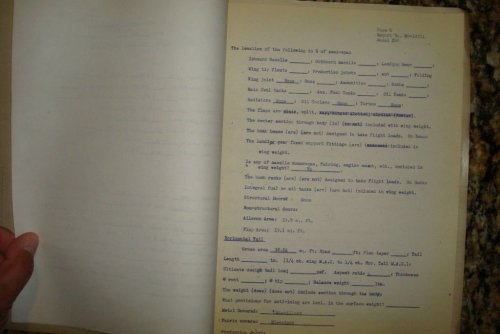 Page 6
Report No.
Model
The location of the following in % of semi-span
Inboard Nacelle ______; Outboard Nacelle ______; Landing Gear ______;
Wing Tip Floats ______; Production joints ______; and ______; Folding
Wing joint None; Guns ______; Ammunition ______; Bombs ______;
Main Fuel Tanks ______; Aux. Fuel Tanks ______; Oil Tanks ______;
Radiators None; Oil Coolers None; Turret None.
The flaps are split,
The center section through body (is) included with wing weight.
The bomb beams (are) (are not) designed to take flight loads. No Bombs
The landing gear fixed support fittings (are) included in
wing weight.
Is any of nacelle monocoque, fairing, engine mount, etc., included in
wing weight? No
The bomb racks (are) (are not) designed to take flight loads. No Racks
Integral fuel or oil tanks (are) (are not) included in wing weight.
Structural Doors: None
Non-structural doors:
Aileron Area: sq. ft.
Flap Area: sq. ft.
Horizontal Tail
Gross area sq. ft; Span ______ ft; Plan taper ______;
Length ______ in. (1/4 ch. wing M.A.C. to 1/4 ch. Hor. Tail M.A.C.);
Ultimate design tail load ______ psf. Aspect ratio ; Thickness
@ root ______; @ tip ______; Balance weight ______ lbs.
The weight (does) (does not) include section through the body:
What provisions for anti-icing are incl. in the surface weight?
Metal Covered:
Fabric covered: